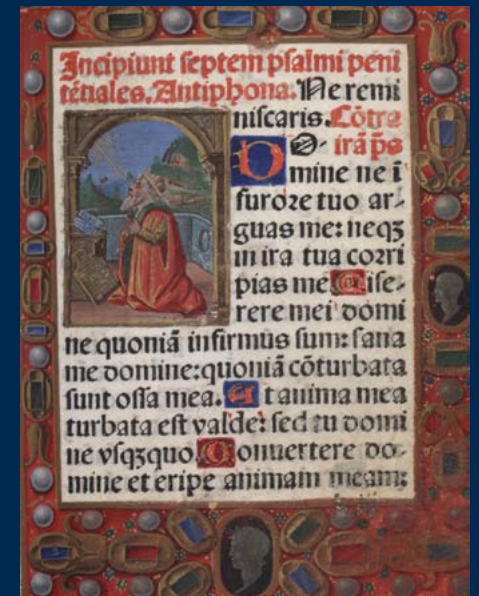 Incipiunt septem psalmi peni
tētiales. Antiphona. Ne remi
niscaris. Cōtra
irā ps
DOmine ne ī
furore tuo ar-
guas me: neqꝫ
in ira tua corri
pias me. Mise-
rere mei domi
ne quoniā infirmus sum: sana
me domine: quoniā cōturbata
sunt ossa mea. Et anima mea
turbata est valde: sed tu domi
ne vsqꝫquo. Conuertere do-
mine et eripe animam meam: